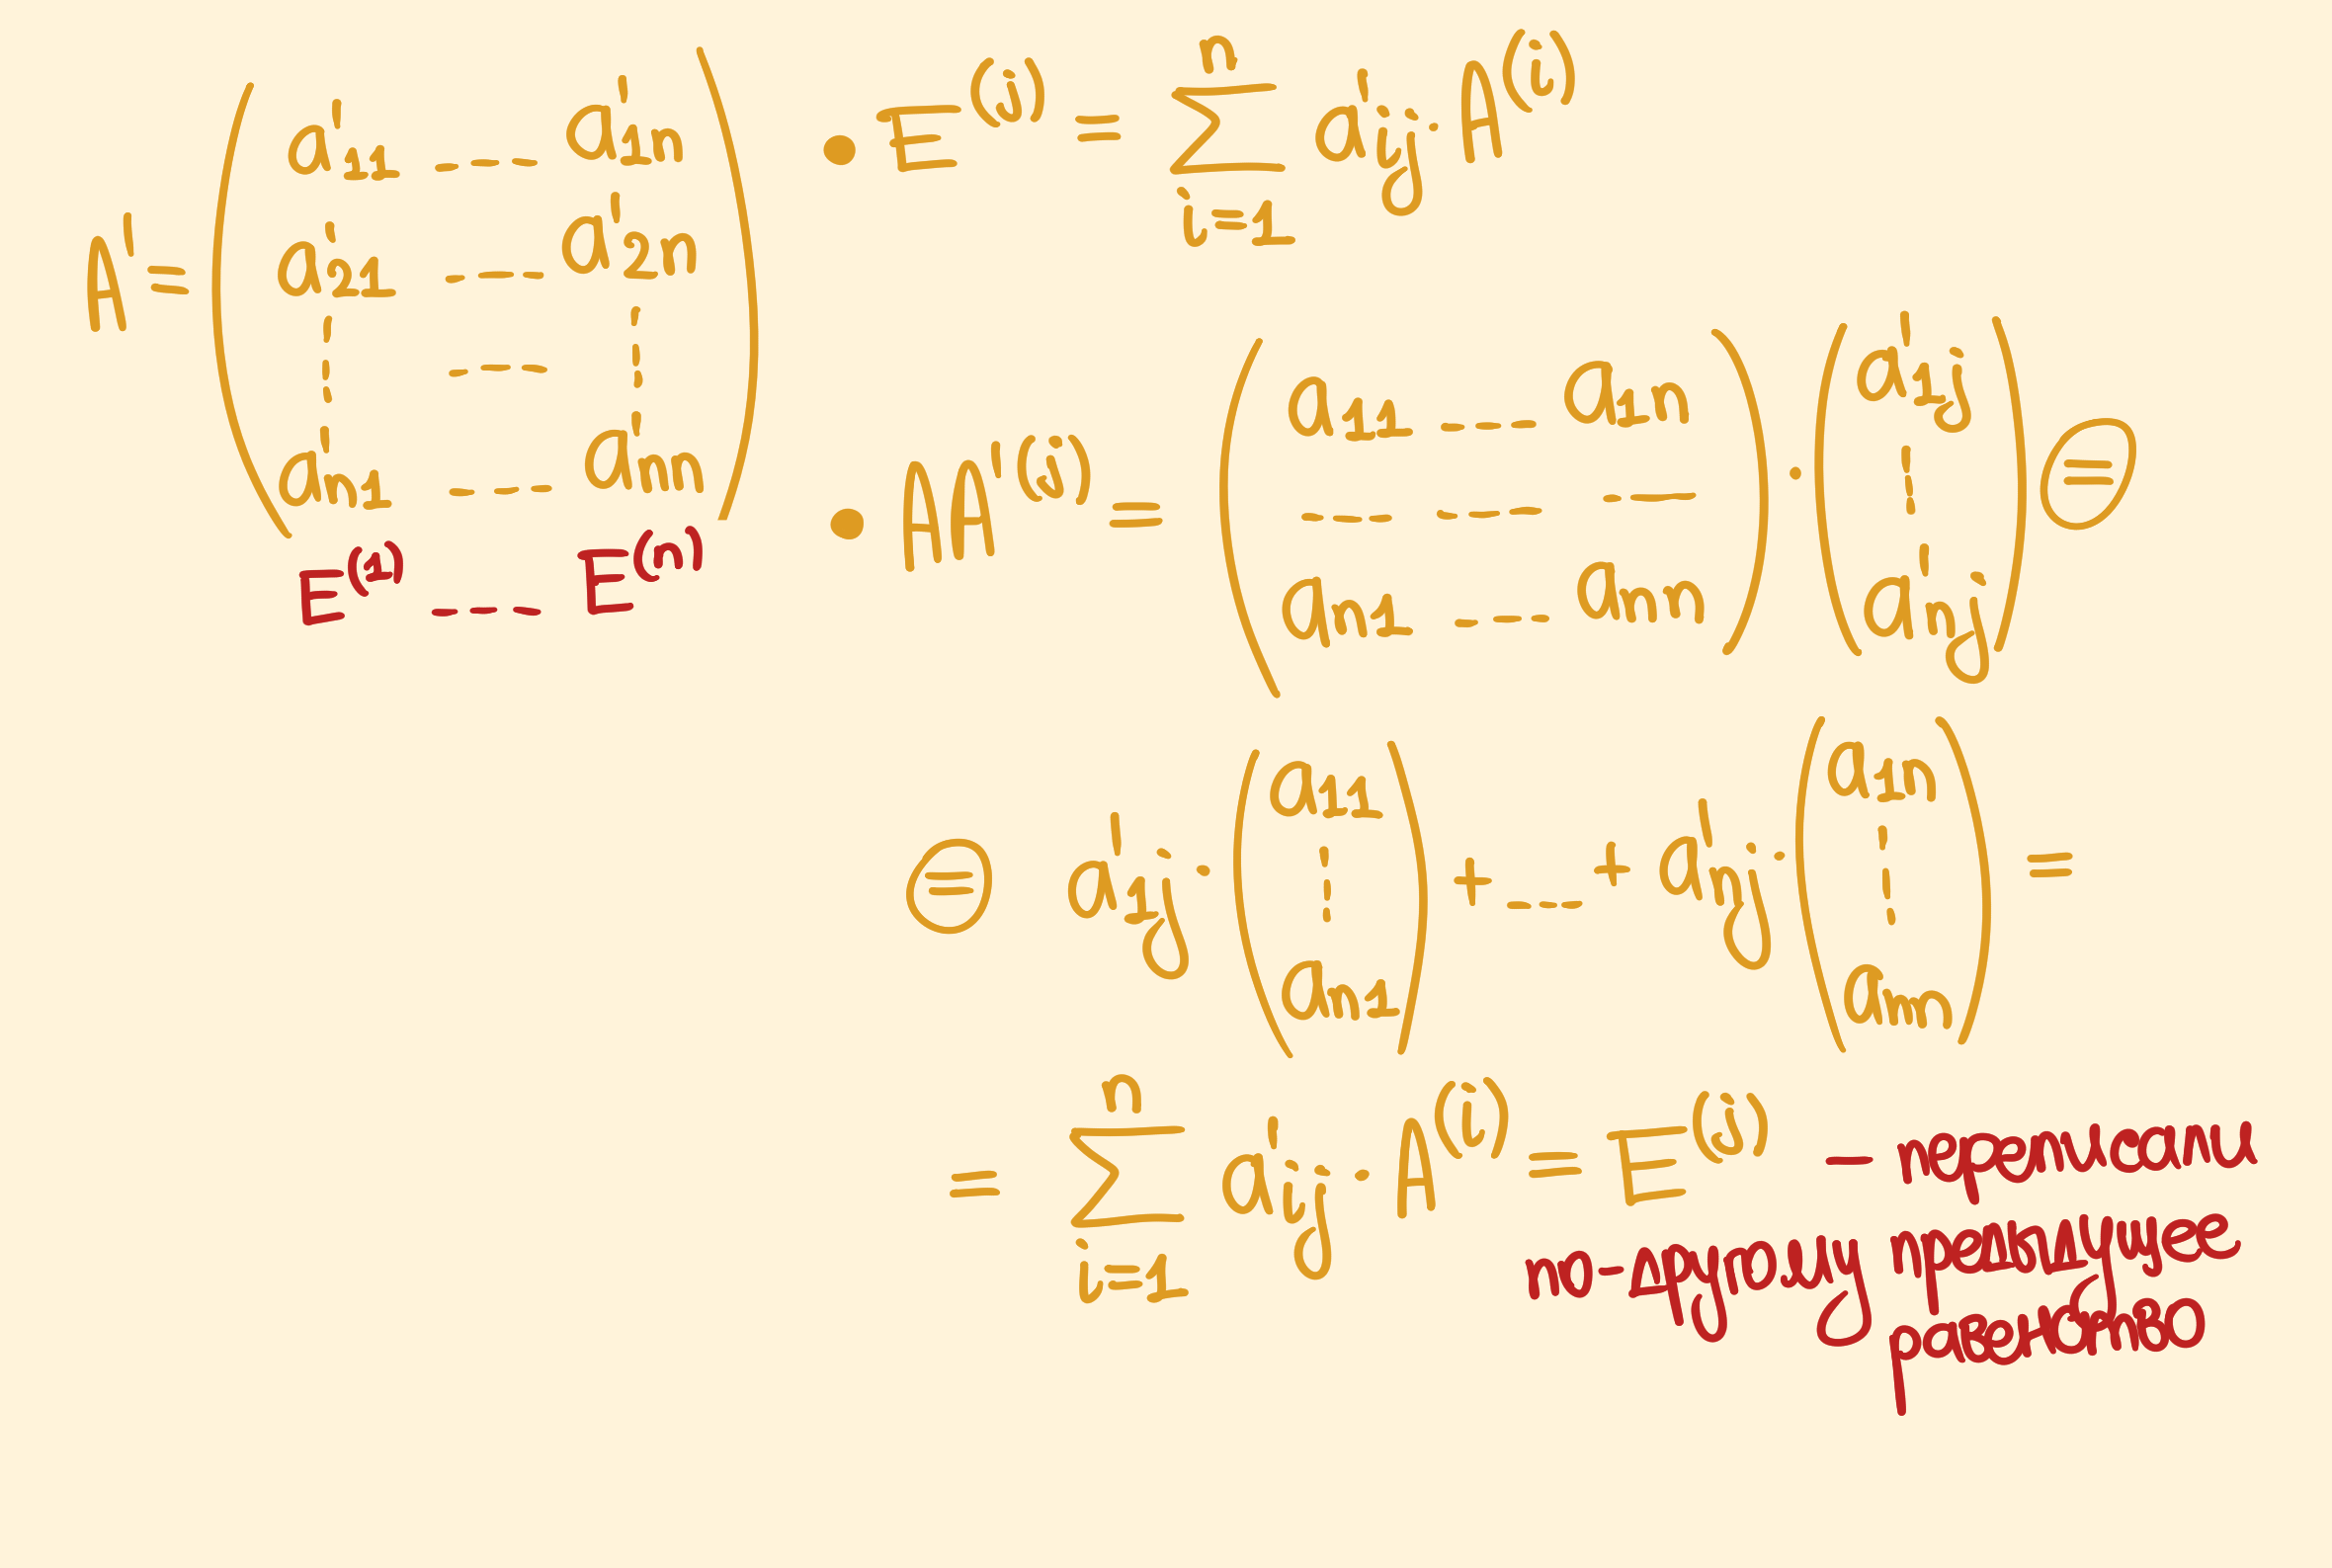 A' = ( a'11 --- a'1n
a'21 --- a'2n
¦ --- ¦
a'n1 --- a'nn )
E(1) --- E(n)
• E(j) = ∑ n i=1 a'ij · A(i)
• AA'(j) = ( a11 --- a1n
--- --- ---
an1 --- ann ) · ( a'1j
¦
a'nj ) ⊜
⊜ a'1j · ( a11
¦
an1 ) + --- + a'nj · ( a1n
¦
ann ) =
= ∑ n i=1 a'ij · A(i) = E(j) – переписали
по-другому предыдущее
равенство